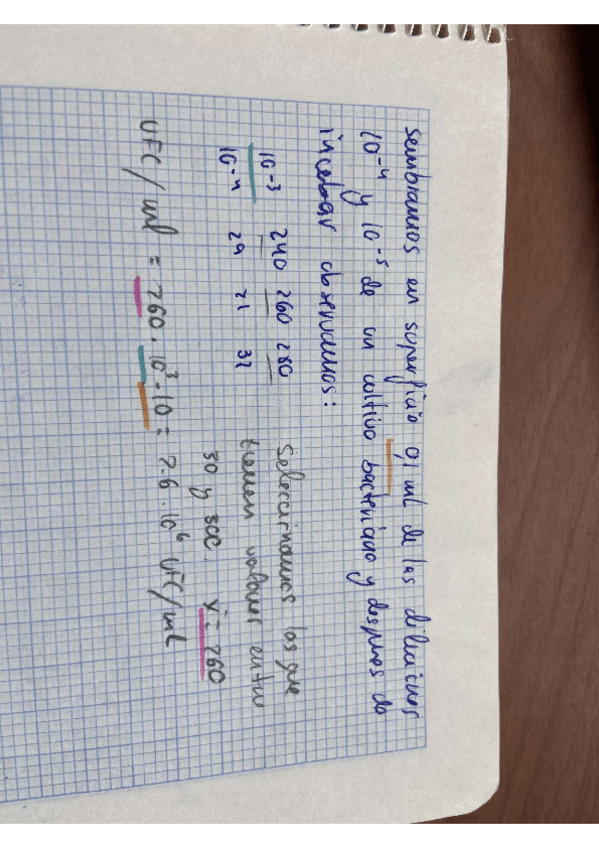 Sembramos en superficie 0,1 mL de las diluciones
10⁻⁴ y 10⁻⁵ de un cultivo bacteriano y despues de
incubar observamos:
10⁻³ 240 260 280
10⁻⁴ 29 21 32
Seleccionamos los que
tienen valores entre
30 y 300. x̄ = 260
UFC/ml = 260 · 10³ · 10 = 2.6 · 10⁶ UFC/mL